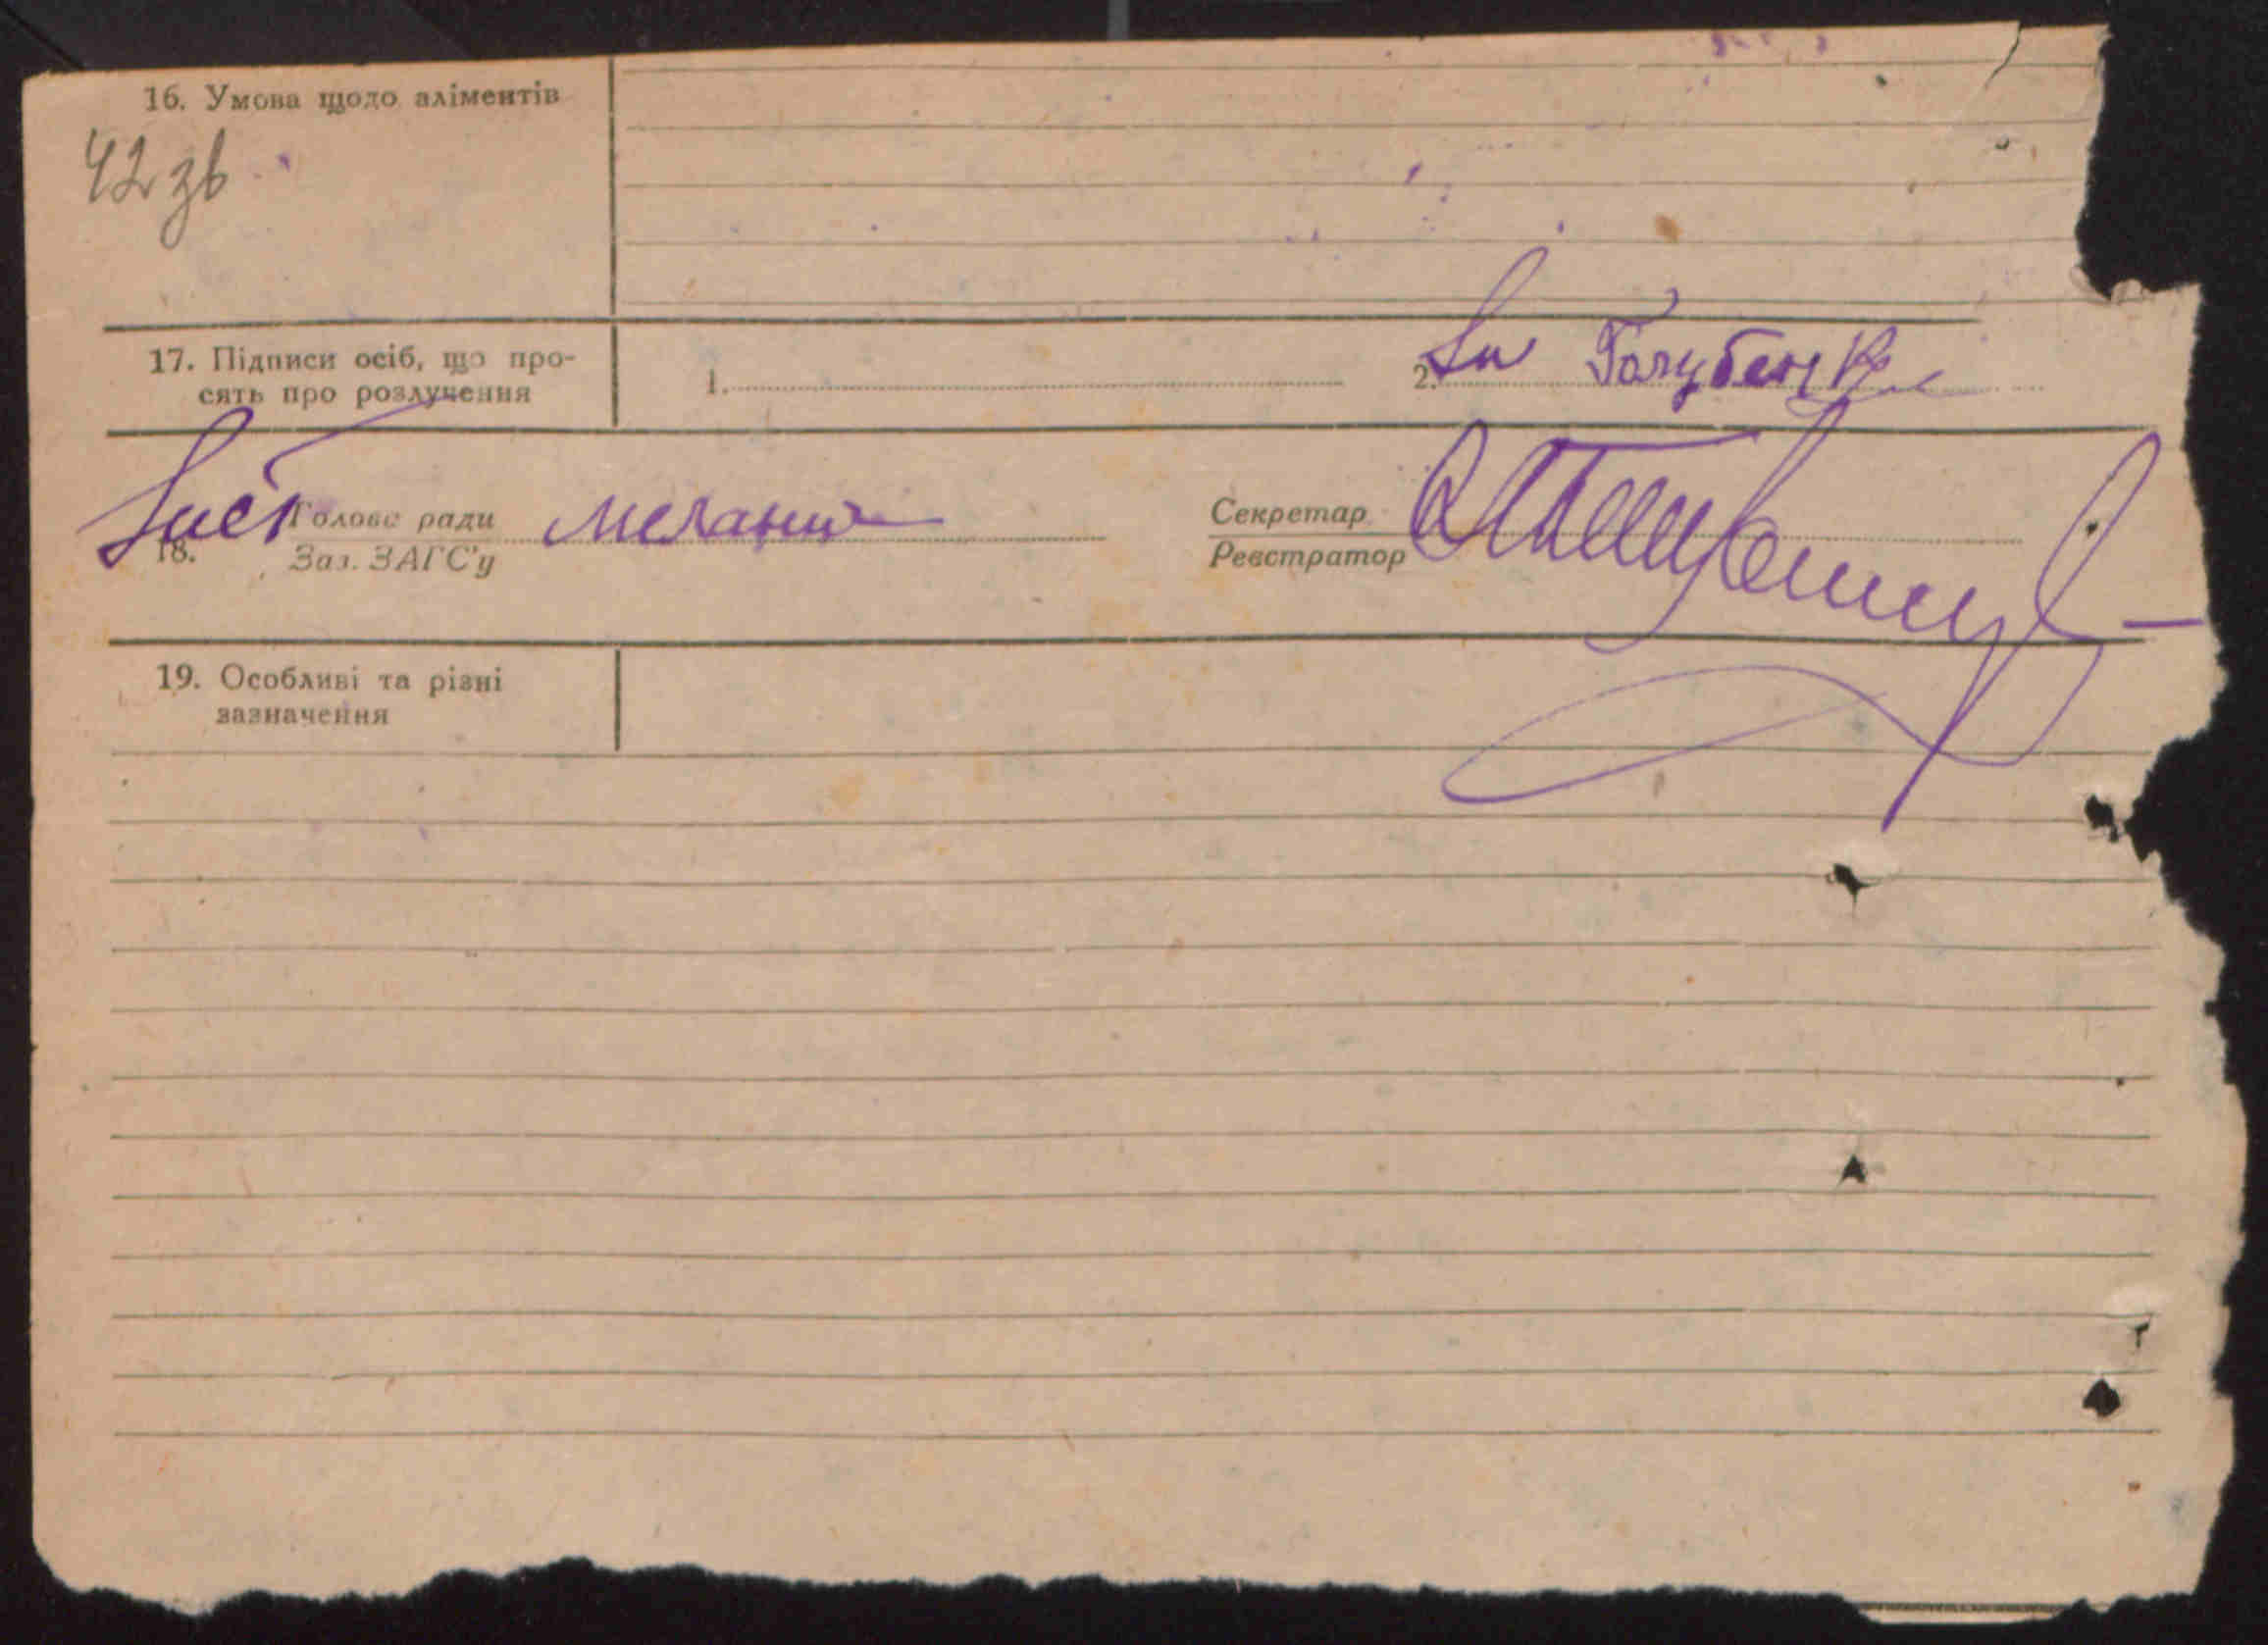 16. Умова щодо аліментів
42 зв
17. Підписи осіб, що про-
сять про розлучення
1. 2. Голубенко
18. Голова ради Секретар
Зав. ЗАГС'у Реєстратор
19. Особливі та різні
зазначення